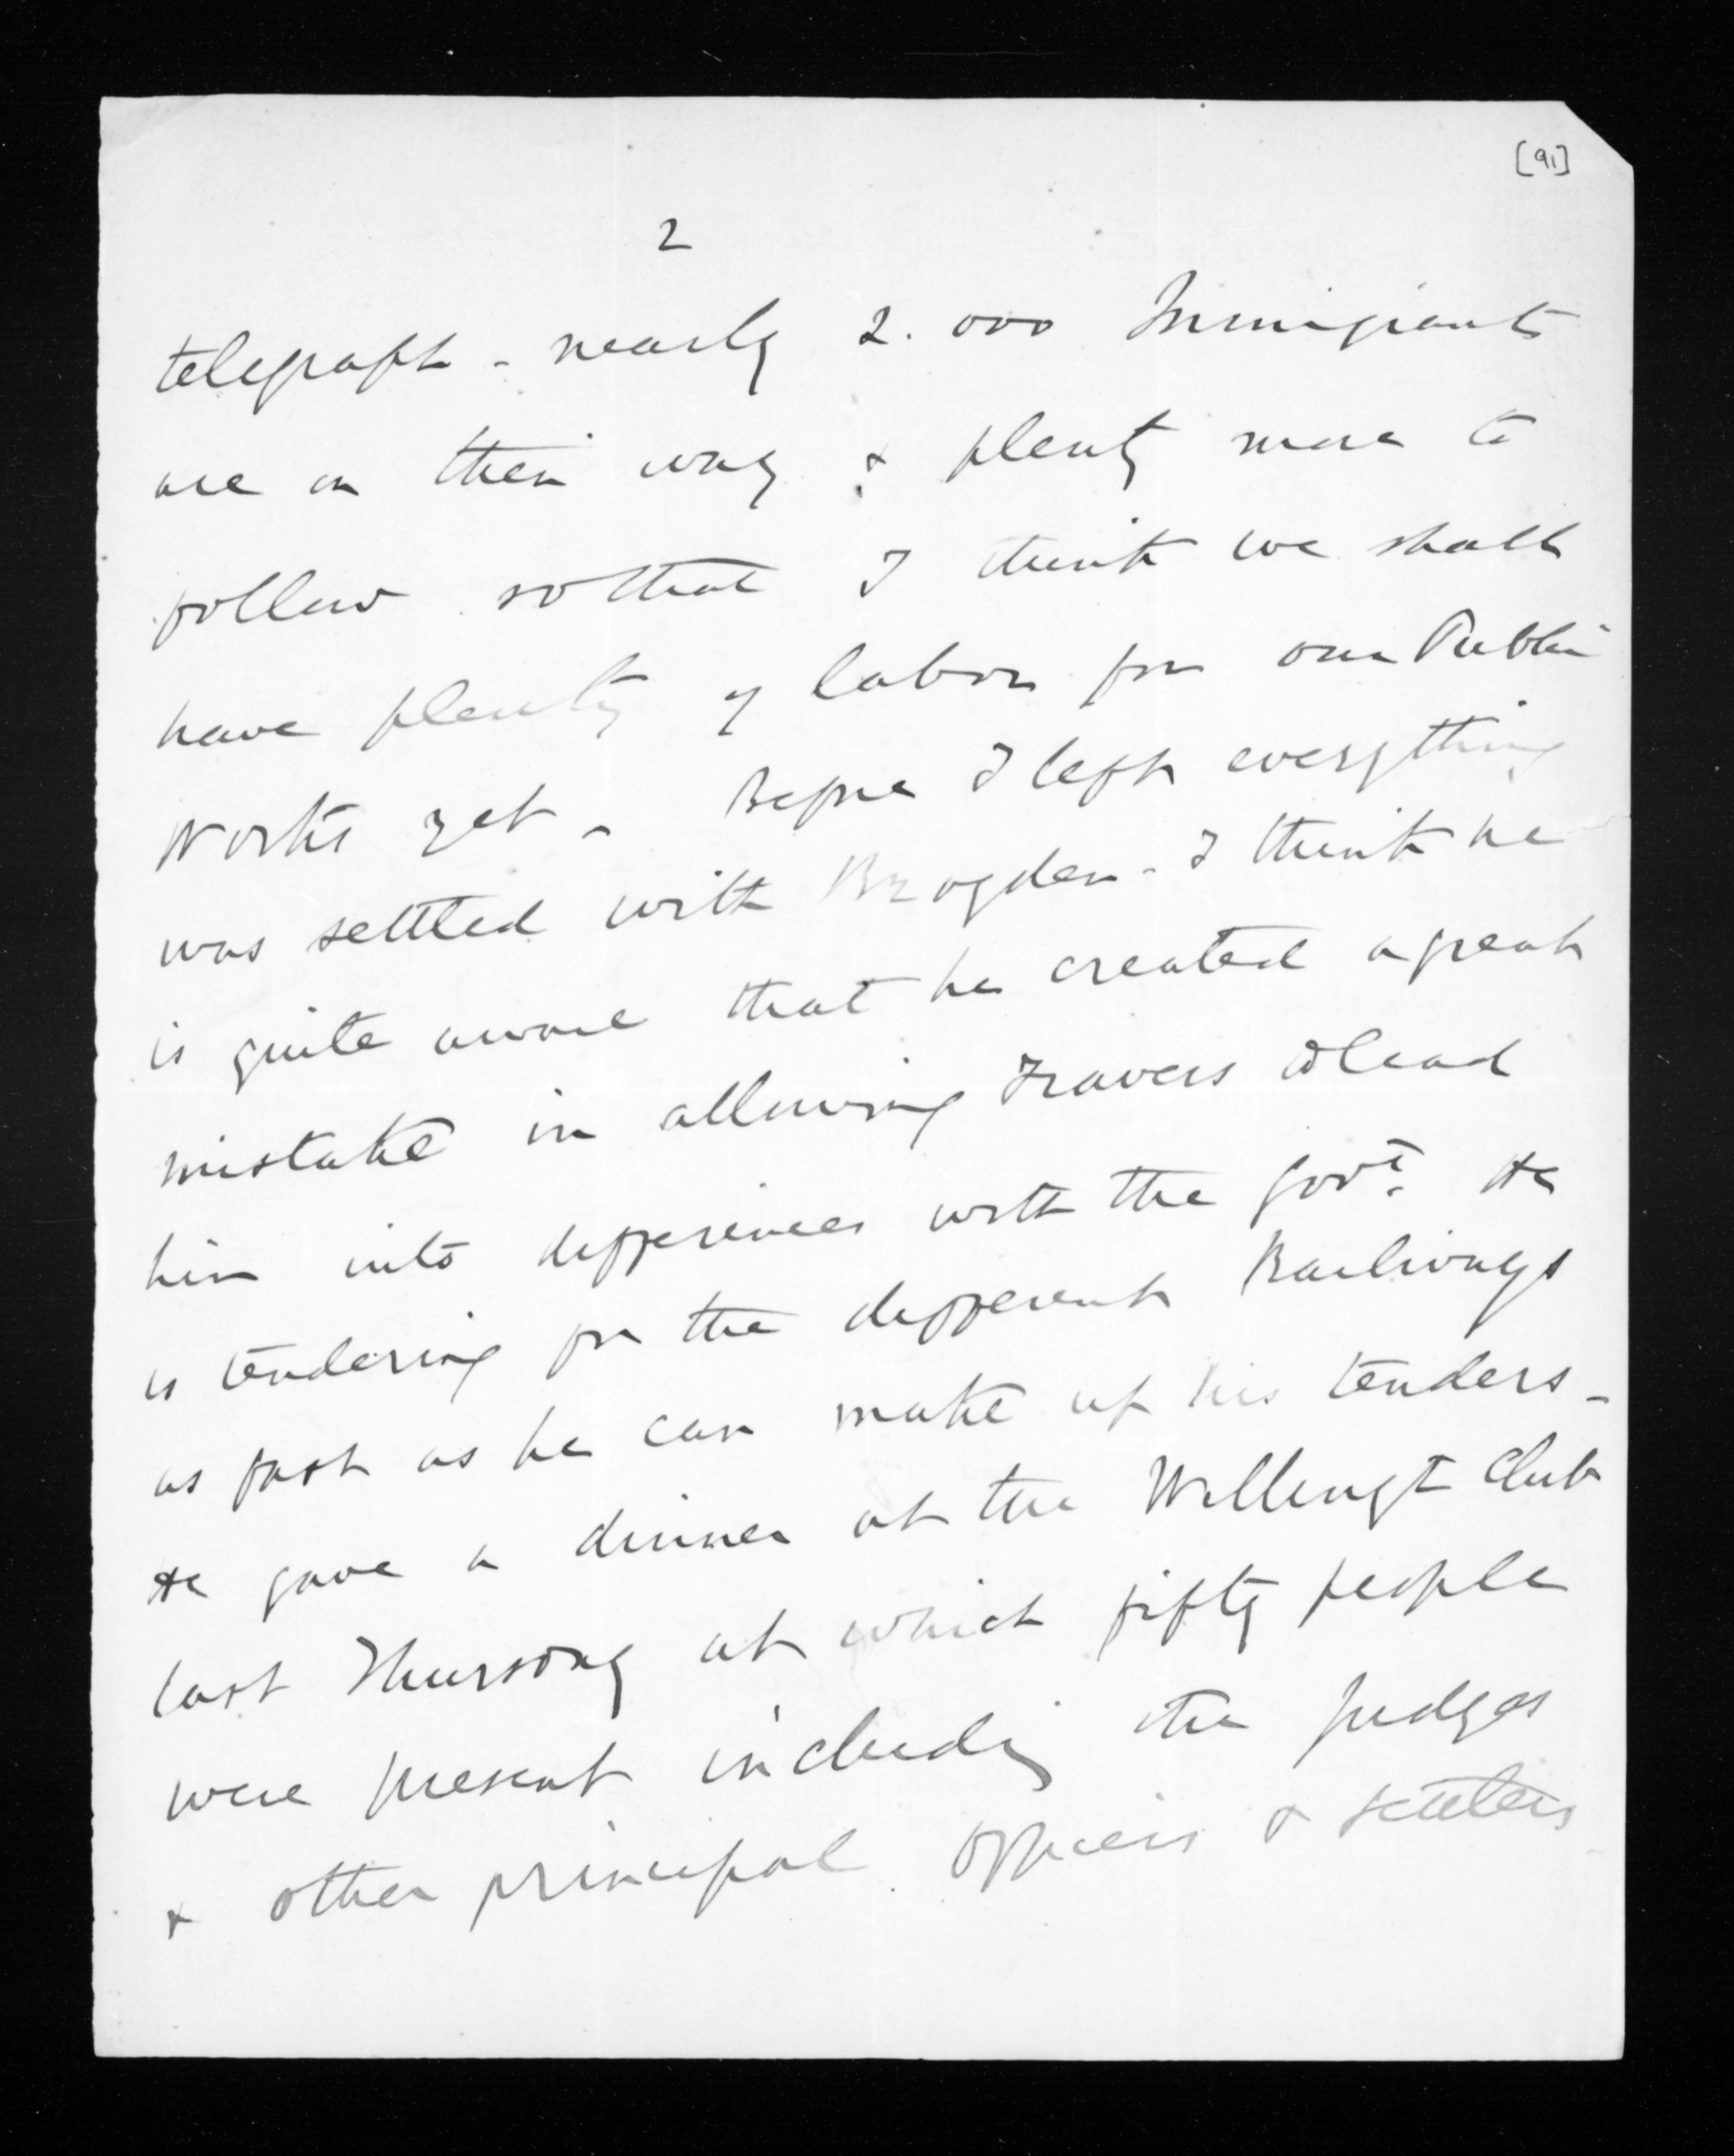 [91]
2
telegraph - nearly 2.000 Immigrants
are on their way & plenty more to
follow so that I think we shall
have plenty of labor for our Public
Works yet - Before I left everything
was settled with Brogden - I think he
is quite aware that he created a great
mistake in allowing Travers to lead
him into differences with the Govt. He
is tendering for the different Railways
as fast as he can make up his tenders -
He gave a dinner at the Wellingt Club
last Thursday at which fifty people
were present including the Judges
& other principal officers & settlers